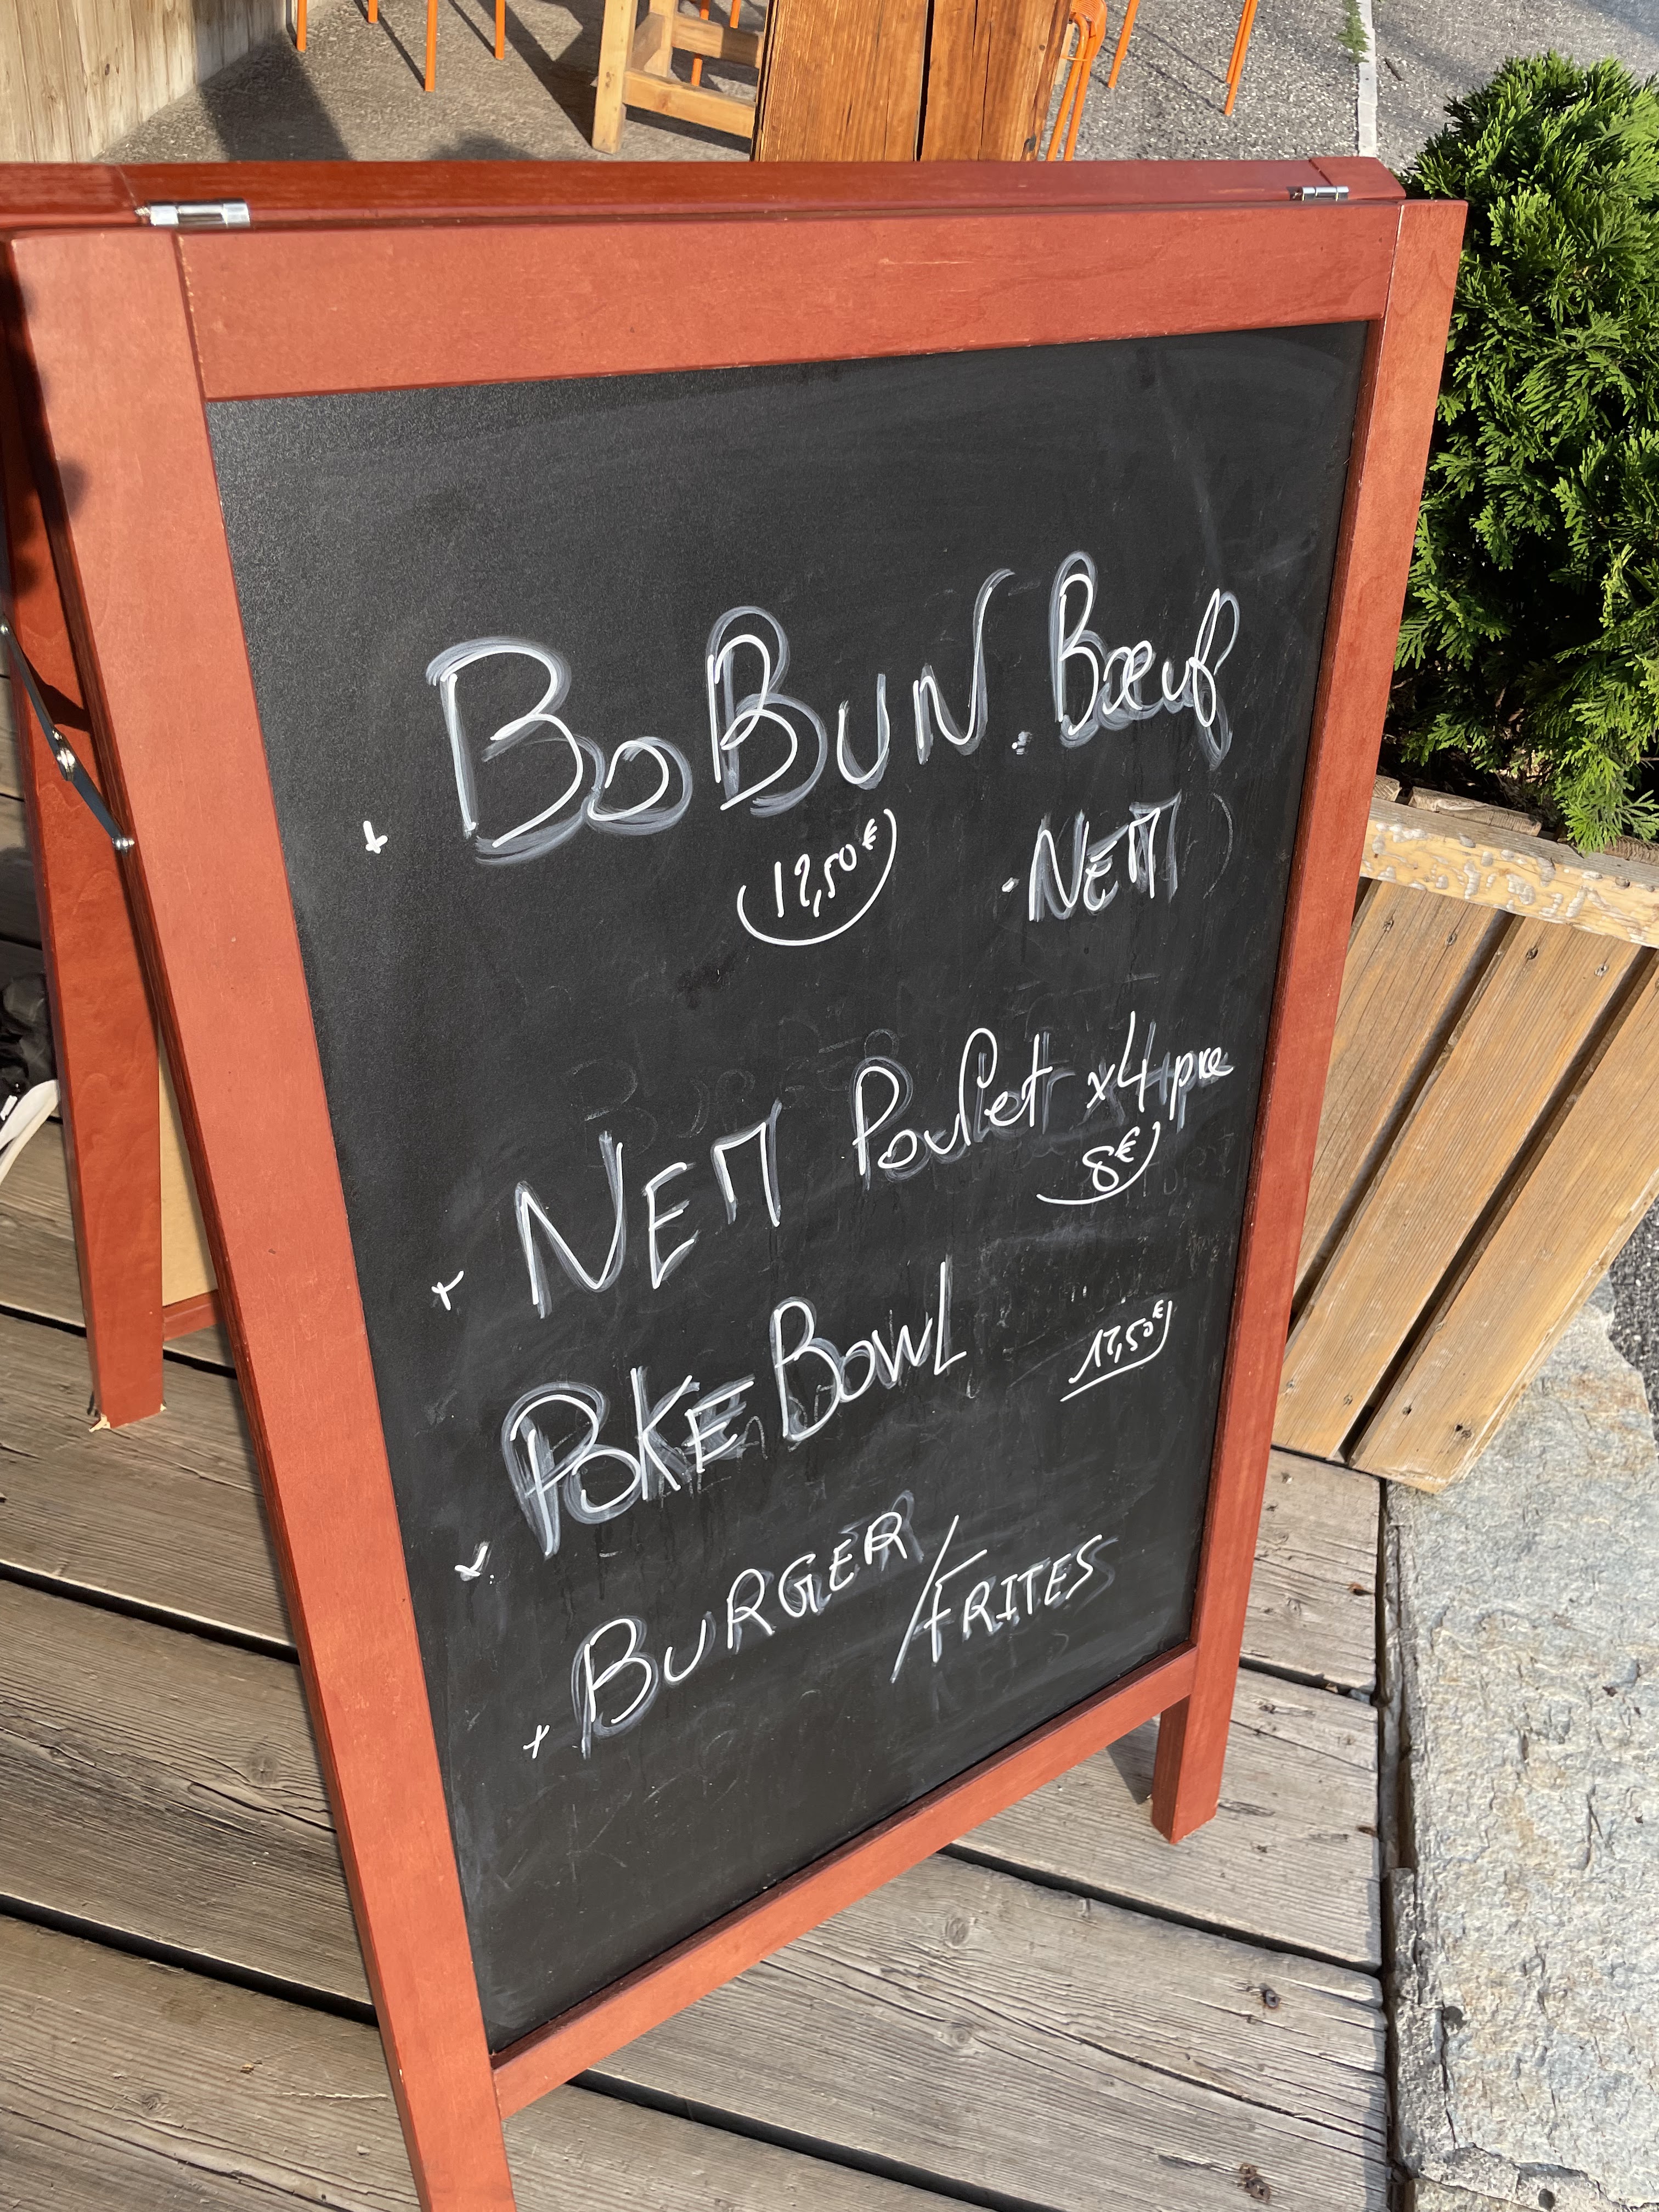 + BoBUN . Bœuf
12,50€ . NEM
+ NEM Poulet x4 pce
8€
+ POKE BOWL 12,50€
+ BURGER / FRITES